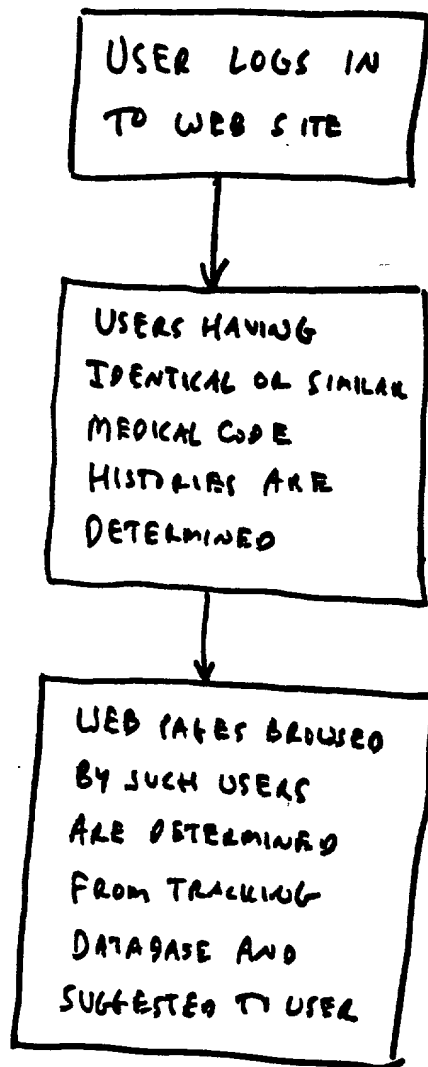 USER LOGS IN
TO WEB SITE
USERS HAVING
IDENTICAL OR SIMILAR
MEDICAL CODE
HISTORIES ARE
DETERMINED
WEB PAGES BROWSED
BY SUCH USERS
ARE DETERMINED
FROM TRACKING
DATABASE AND
SUGGESTED TO USER